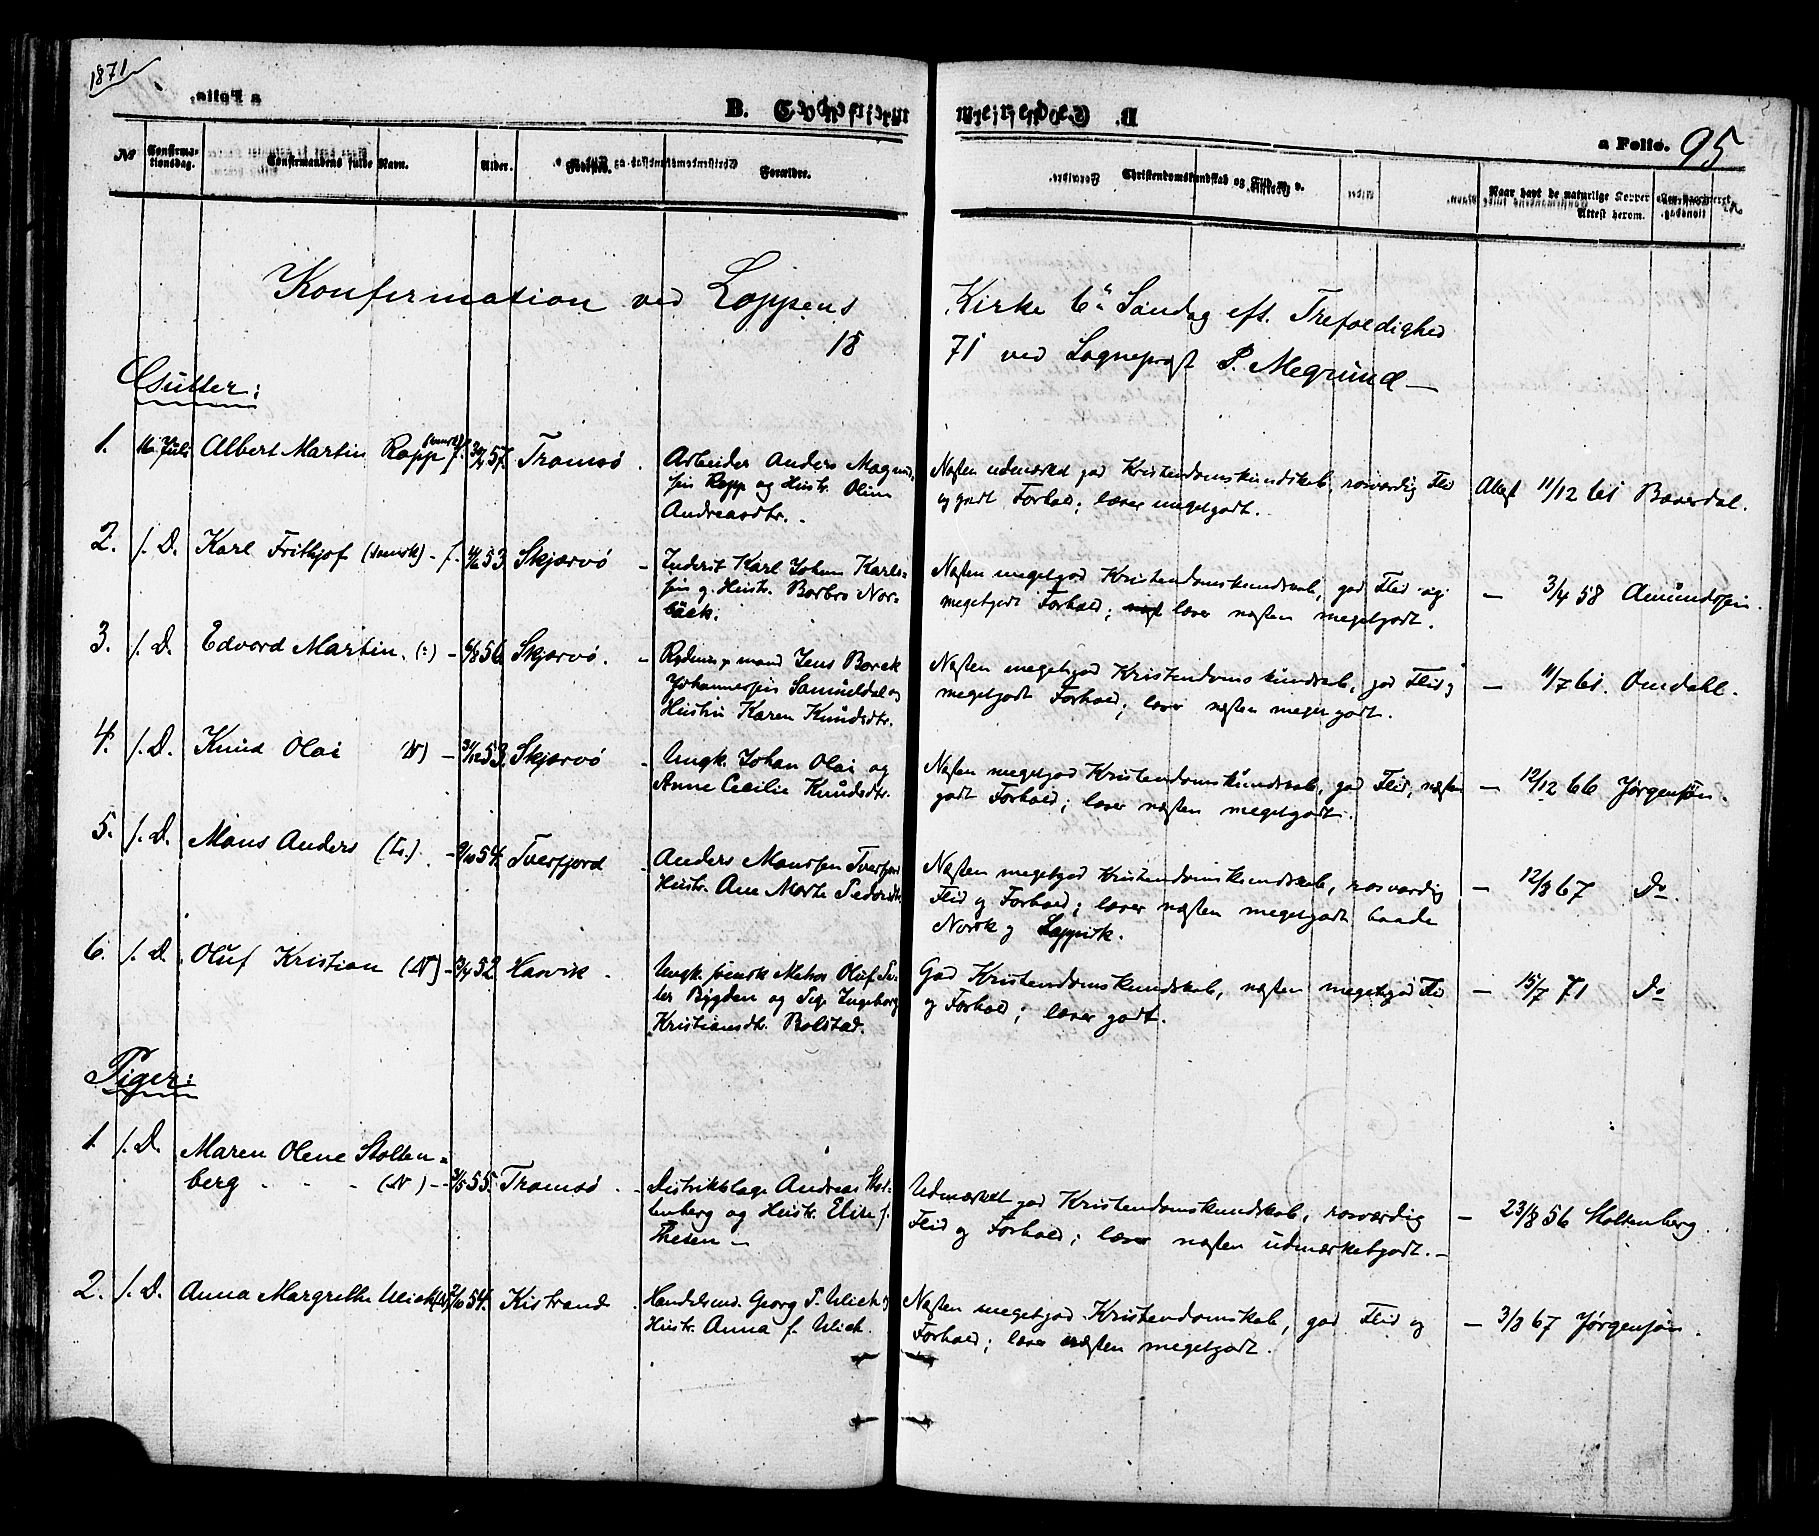 1871
B. Confirm
a Folio. 95
No
Confirma-
tionsdag.
Confirmandens fulde Navn.
Alder.
Fødested.
Forældre.
Christendomskundskab og Flid m. v.
Naar havt de naturlige Kopper
Attest herom.
Konfirmation ved Loppens Kirke 6te Søndag eft. Trefoldighed
18 71 ved Sogneprest P. Megrund —
Gutter:
1. 16 Juli Albert Martin Rapp (svensk) f. 57. Tromsö.
Arbeider Anders Magnus-
sen Rapp og Hustr. Olina
Andreasdtr.
Næsten udmærket god Kristendomskundskab, rosværdig Flid
og godt Forhold; læser megetgodt.
Attest 11/12 61 Baardal.
2. f. D. Karl Frithjof (svensk) - f. 53 Skjærvö
Inderst Karl Johan Karls-
sen og Hustr. Barbro Nor-
bäck.
Næsten megetgod Kristendomskundskab, god Flid og
megetgodt Forhold; læser næsten megetgodt.
— 3/4 58 Amundssen.
3. f. D. Edvard Martin. 6/8 56 Skjærvö.
Rydningsmand Jens Borck
Johannessen Samueldal og
Hustru Karen Knudsdtr.
Næsten megetgod Kristendomskundskab, god Flid og
megetgodt Forhold; læser næsten megetgodt.
— 11/7 61. Omdahl.
4. f. D. Knud Olai (N) — 31/12 53. Skjærvö
Ungk. Johan Olai og
Anne Cecilie Knudsdtr.
Næsten megetgod Kristendomskundskab, god Flid, næsten
godt Forhold; læser næsten megetgodt.
— 12/12 66 Jørgensøn.
5. f. D. Mons Anders — 9/10 54. Tverfjord
Anders Monssen Tverfjord
Hustr. Ane Marte Pedersdtr.
Næsten megetgod Kristendomskundskab, rosværdig
Flid og Forhold; læser næsten megetgodt baade
Norsk og Lappisk.
— 12/8 67 Do.
6. f. D. Oluf Kristian (N) — 52 Hasvik.
Ungk. svensk Matros Oluf Pet-
ter Bygden og Pige Ingeborg
Kristiansdtr. Bolstad.
God Kristendomskundskab, næsten megetgod Flid
og Forhold; læser godt.
— 15/7 71 Do
Piger:
1. f. D. Maren Olene Stolten-
berg (N) — 55. Tromsö.
Distriktslæge Andreas Stol-
tenberg og Hustr. Elise f.
Thesen —
Udmærket god Kristendomskundskab, rosværdig
Flid og Forhold; læser næsten udmærketgodt. —
— 23/8 56 Stoltenberg
2. f. D. Anna Margrethe Ulich (N) 54. Kistrand
Handelsmd. Georg P. Ulich og
Hustr. Anna f. Ulich.
Næsten megetgod Kristendomskab, god Flid og
Forhold; læser næsten megetgodt.
— 3/8 67 Jørgensøn.